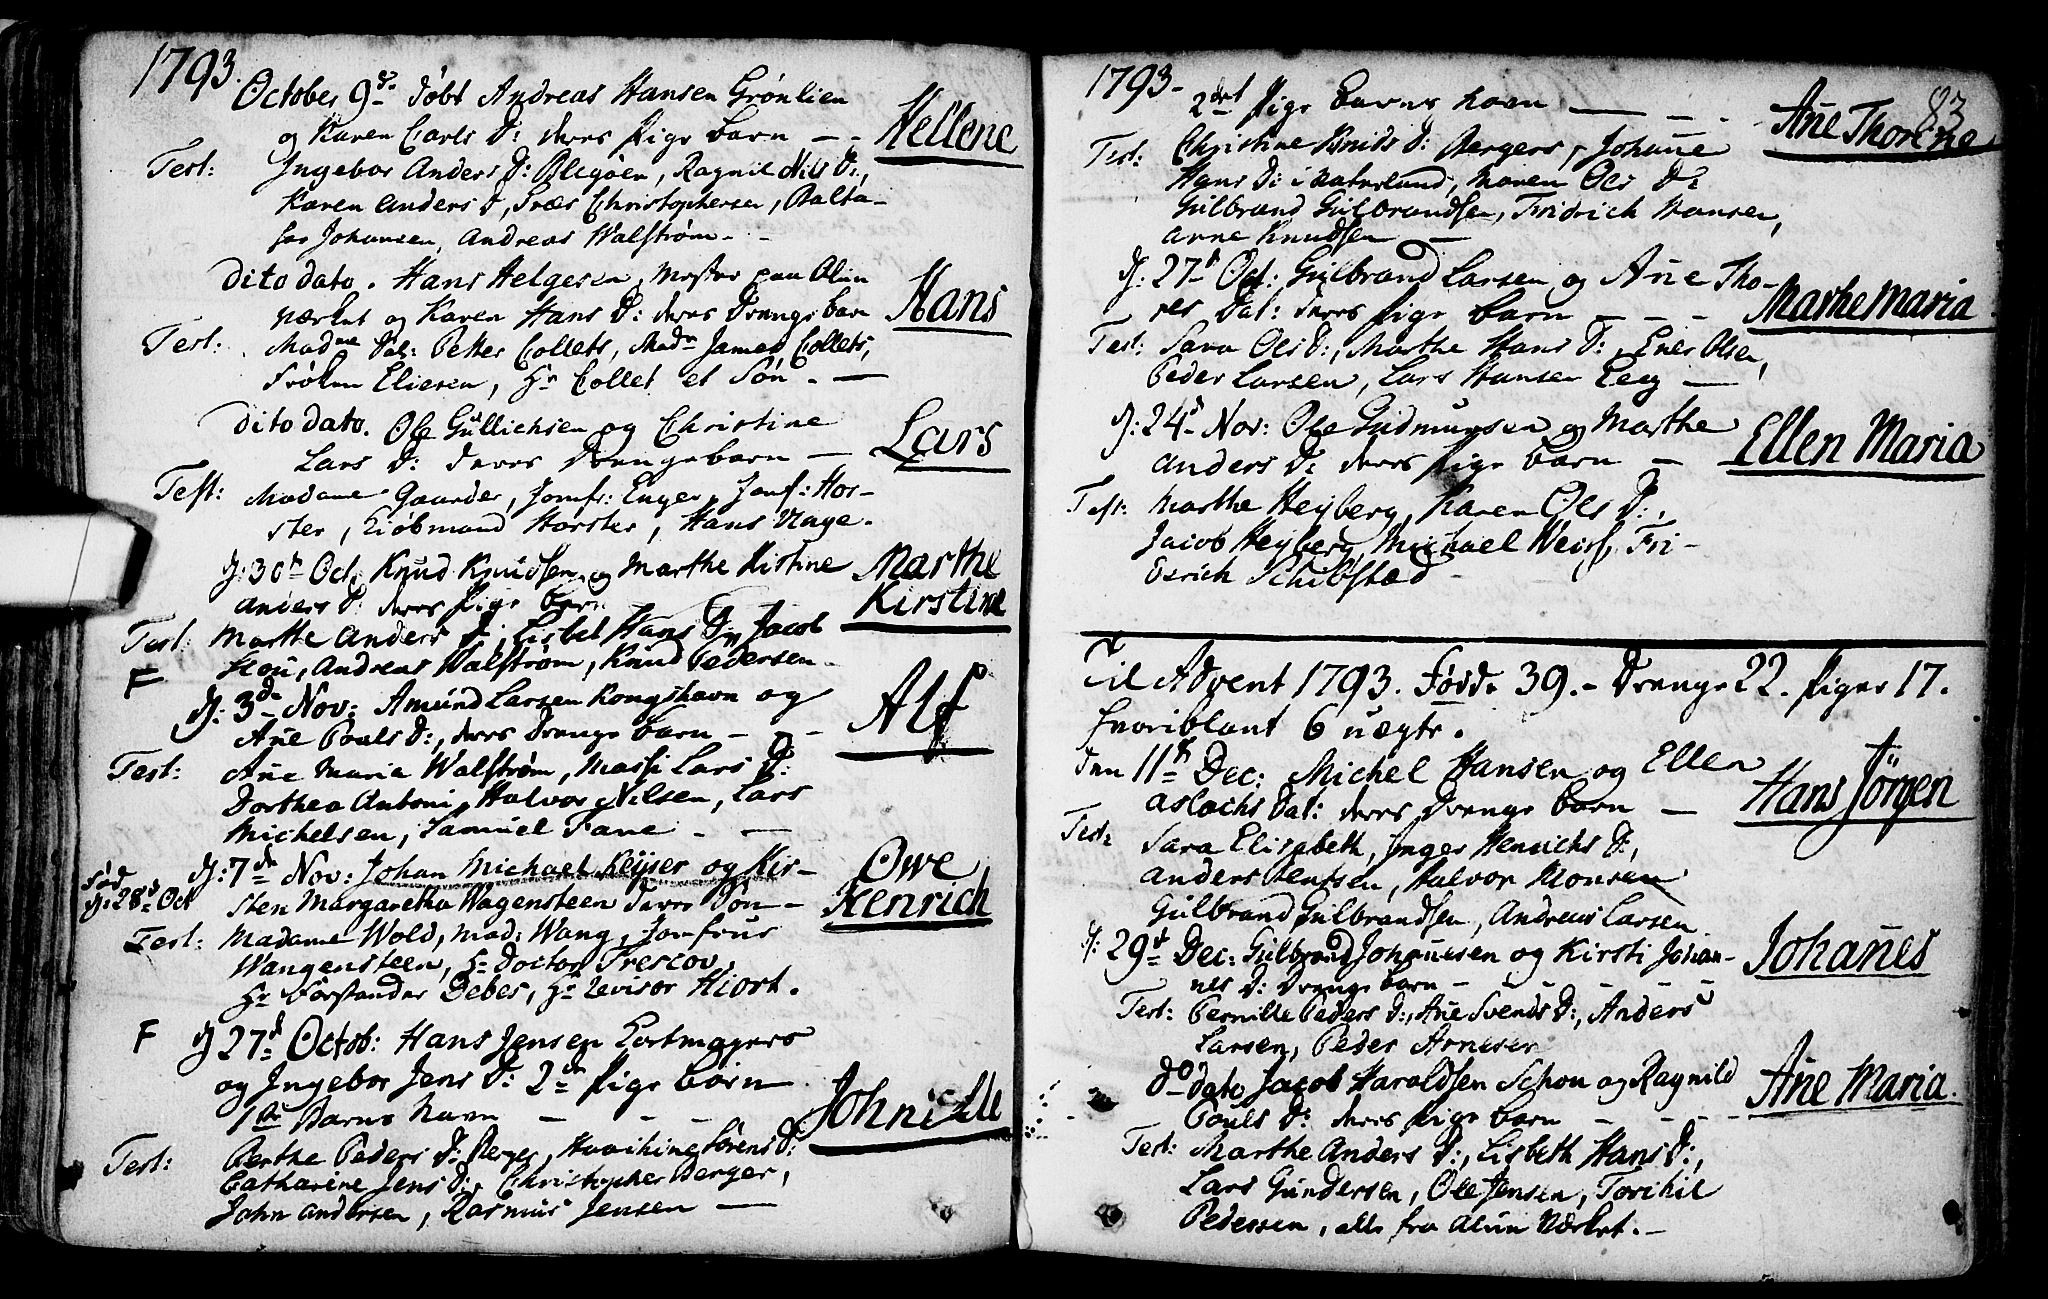 1793.
October 9de døbt Andreas Hansen Grønlien
og Karen Carls D: deres Pige barn — -
Hellene
Test: Ingebor Anders D: Ragnil Nils D:,
Karen Anders D, Christophersen, Balta-
sar Johansen, Andreas Walstrøm - -
dito dato. Hans Helgesen, Mester paa Alun
værket og Karen Hans D: deres Drenge barn
Hans
Test: Madme Sal: Petter Collets, Madm James Collets,
Frøken Eliesen, Hr Collet et Søn. —
dito dato. Ole Gullichsen og Christine
Lars D: deres Drengebarn —
Lars
Test: Madame Gaarder, Jomfr: Enger, Jomf: Hor-
ster, Kiøbmand Horster, Hans Hage.
d: 30te Oct, Knud Knudsen og Marthe Kistine
Anders D: deres Pige barn
Marthe
Kirstine
Test: Marthe Anders D:, Lisbet Hans D, Jacob
Skou, Andreas Walstrøm, Knud Pedersen -
F
d: 3de Nov: Amund Larsen Kongshavn og
Ane Pouls D:, deres Drenge barn - - -
Alf
Test: Ane Maria Walstrøm, Massi Lars D:
Dorthea Antoni, Halvor Nilsen, Lars
Michelsen, Samuel Fane - —
d: 7de Nov: Johan Michael Keyser og Kir-
fød
d: 28de Oct
sten Margaretha Wagensteen deres Søn -
Owe
Henrich
Test: Madame Wold, Mad: Wang, Jomfrue
Wangensteen, Hr Doctor Trescov,
Hr Forstander Debes, Hr Revisor Hiort.
F d 27de Octob: Hans Jensen Cortmagers
og Ingebor Jens D: 2de Pige børn
1te Barns navn — - -
Johnille
Test: Berthe Peders D: Berger, Sørens D:
Catharine Jens D:, Christopher Berger,
John Andersen, Rasmus Jensen —
1793- 83
2det Pige Barns navn — - -
Ane Thorine
Test: Christine Knuds D: Bergers, Johane
Hans D: i Maren Ols D:
Gulbrand Gulbrandsen, Fridrich Hansen,
Arne Knudsen —
d: 27de Oct: Gulbrand Larsen og Ane Tho-
res Dat: deres Pige barn - - - -
Marthe Maria
Test: Sara Ols D:, Marthe Hans D:, Ener Olsen,
Peder Larsen, Lars Hansen Eeg —
d: 24de Nov: Ole Gudmunsen og Marthe
Anders D: deres Pige barn —
Ellen Maria
Test: Marthe Heyberg, Karen Ols D:,
Jacob Heyberg, Michael Weiss, Fri-
derich Schibsted -
Til Advent 1793. Fødde 39. - Drenge 22. Piger 17.
hvoriblant 6 uægte.
den 11te Dec: Michel Hansen og Ellen
Aslachs Dat: deres Drenge barn —
Hans Jörgen
Test: Sara Elisabeth, Inger Henrichs D:,
Anders Jentsen, Halvor Monsen
Gulbrand Gulbrandsen, Andreas Larsen
d: 29de Dec: Gulbrand Johannesen og Kirsti Johan-
nes D: Drenge barn - - - - -
Johanes
Test: Pernille Peders D:, Ane Svends D:, Anders
Larsen, Peder Arnesen
do dato Jacob Haroldsen Schou og Ragnild
Pouls D: deres Pige barn - - - -
Ane Maria.
Test: Marthe Anders D:, Lisbeth Hans D:,
Lars Gundersen, Ole Jensen, Torikil
Pedersen, alle fra Alun værket. -